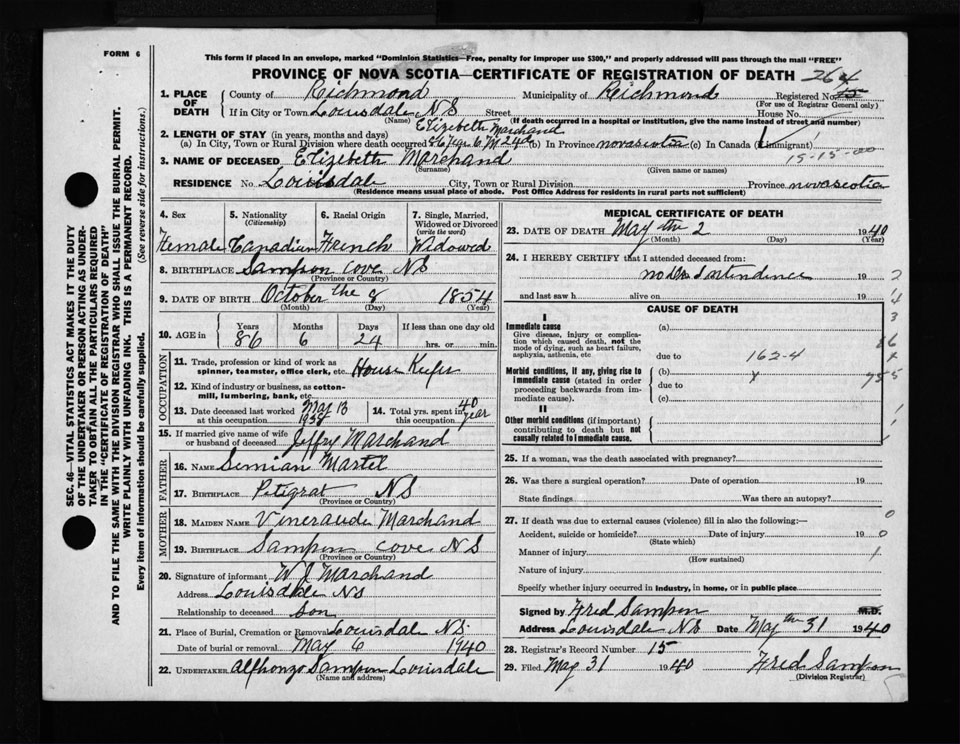 FORM 6
This form if placed in an envelope, marked "Dominion Statistics—Free, penalty for improper use $300," and properly addressed will pass through the mail "FREE"
PROVINCE OF NOVA SCOTIA—CERTIFICATE OF REGISTRATION OF DEATH 264
SEC. 46—VITAL STATISTICS ACT MAKES IT THE DUTY
OF THE UNDERTAKER OR PERSON ACTING AS UNDER-
TAKER TO OBTAIN ALL THE PARTICULARS REQUIRED
IN THE "CERTIFICATE OF REGISTRATION OF DEATH"
AND TO FILE THE SAME WITH THE DIVISION REGISTRAR WHO SHALL ISSUE THE BURIAL PERMIT.
WRITE PLAINLY WITH UNFADING INK. THIS IS A PERMANENT RECORD.
Every item of information should be carefully supplied. (See reverse side for instructions.)
1. PLACE OF DEATH County of Richmond Municipality of Richmond Registered No. 15
(For use of Registrar General only)
If in City or Town Louisdale NS Street House No.
(Name) (If death occurred in a hospital or institution, give the name instead of street and number)
Elizebeth Marchand
2. LENGTH OF STAY (in years, months and days)
(a) In City, Town or Rural Division where death occurred 86 Year 6 M 24 d (b) In Province novascotia (c) In Canada (if immigrant)
15-15-00
3. NAME OF DECEASED Elizebeth Marchand
(Surname) (Given name or names)
RESIDENCE No. Louisdale City, Town or Rural Division Province novascotia
(Residence means usual place of abode. Post Office Address for residents in rural parts not sufficient)
4. Sex Female
5. Nationality (Citizenship) Canadian
6. Racial Origin French
7. Single, Married, Widowed or Divorced (write the word) Widowed
8. BIRTHPLACE Sampson cove NS
(Province or Country)
9. DATE OF BIRTH October the 8 1854
(Month) (Day) (Year)
10. AGE in Years 86 Months 6 Days 24 If less than one day old hrs. or min.
OCCUPATION
11. Trade, profession or kind of work as spinner, teamster, office clerk, etc. House Keeper
12. Kind of industry or business, as cotton-mill, lumbering, bank, etc.
13. Date deceased last worked at this occupation May 13 1938
14. Total yrs. spent in this occupation 40 year
15. If married give name of wife or husband of deceased Jeffry Marchand
FATHER
16. NAME Semian Martel
17. BIRTHPLACE Petigrat NS
(Province or Country)
MOTHER
18. MAIDEN NAME Vineraude Marchand
19. BIRTHPLACE Sampson cove NS
(Province or Country)
20. Signature of informant W J Marchand
Address Louisdale NS
Relationship to deceased son
21. Place of Burial, Cremation or Removal Louisdale NS
Date of burial or removal May 6 1940
22. UNDERTAKER Alfhonzo Sampson Louisdale
(Name and address)
MEDICAL CERTIFICATE OF DEATH
23. DATE OF DEATH May the 2 1940
(Month) (Day) (Year)
24. I HEREBY CERTIFY that I attended deceased from:
no Drs artendence 19
and last saw h alive on 19
CAUSE OF DEATH
I
Immediate cause (a)
Give disease, injury or complication which caused death, not the mode of dying, such as heart failure, asphyxia, asthenia, etc
due to 162-4
Morbid conditions, if any, giving rise to immediate cause (stated in order proceeding backwards from immediate cause).
(b)
due to
(c)
II
Other morbid conditions (if important) contributing to death but not causally related to immediate cause.
25. If a woman, was the death associated with pregnancy?
26. Was there a surgical operation? Date of operation 19
State findings Was there an autopsy?
27. If death was due to external causes (violence) fill in also the following:—
Accident, suicide or homicide? Date of injury 19
(State which)
Manner of injury
(How sustained)
Nature of injury
Specify whether injury occurred in industry, in home, or in public place
Signed by Fred Sampson M.D.
Address Louisdale NS Date May th 31 1940
28. Registrar's Record Number 15
29. Filed May 31 1940 Fred Sampson
(Division Registrar)